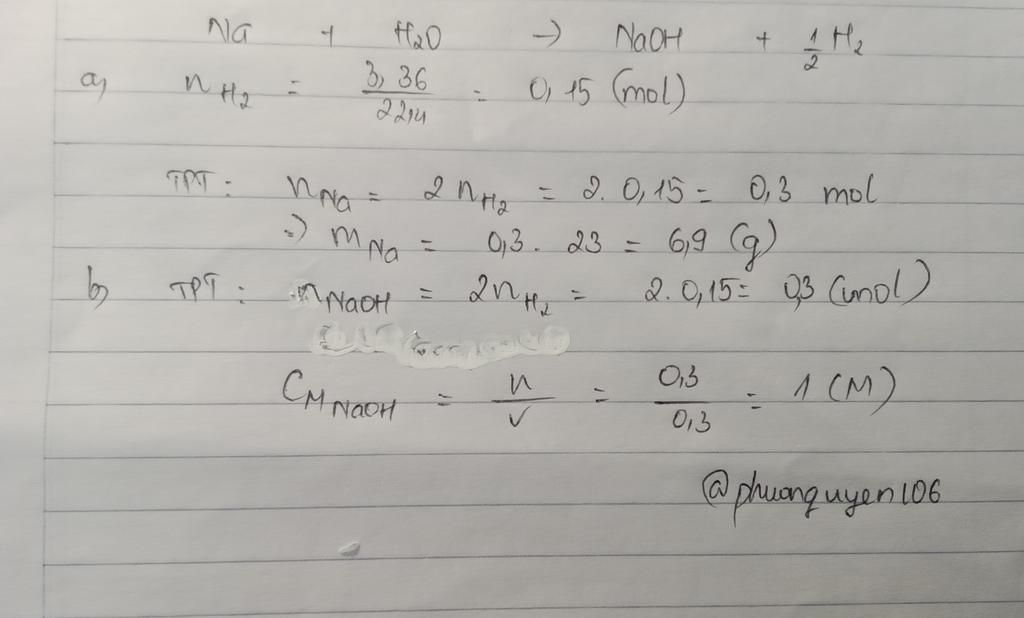 Na + H₂O → NaOH + 1/2 H₂
a, nH₂ = 3,36/22,4 = 0,15 (mol)
TPT: nNa = 2nH₂ = 2. 0,15 = 0,3 mol
=) mNa = 0,3. 23 = 6,9 (g)
b, TPT: nNaOH = 2nH₂ = 2. 0,15 = 0,3 (mol)
CM NaOH = n/v = 0,3/0,3 = 1 (M)
@phuonquyen106